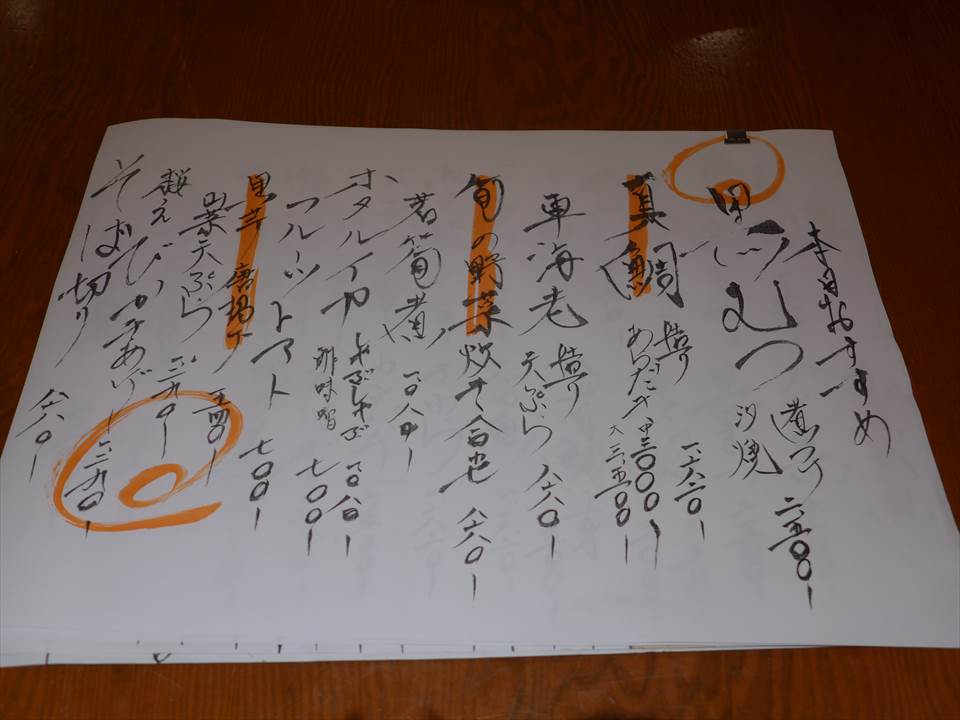 本日おすすめ
黒むつ 煮つけ 二五〇〇-
汐焼
真鯛 造り 一、六八〇-
あらだき 中三〇〇〇-
大三五〇〇-
車海老 造り
天ぷら 八六〇-
旬の野菜炊き合せ 八六〇-
若筍煮 一〇八〇-
ホタルイカ しゃぶしゃぶ 一〇八〇-
酢味噌 七〇〇-
フルーツトマト 七〇〇-
里芋唐揚げ
山菜天ぷら
桜えびかきあげ
そば切り 八六〇-